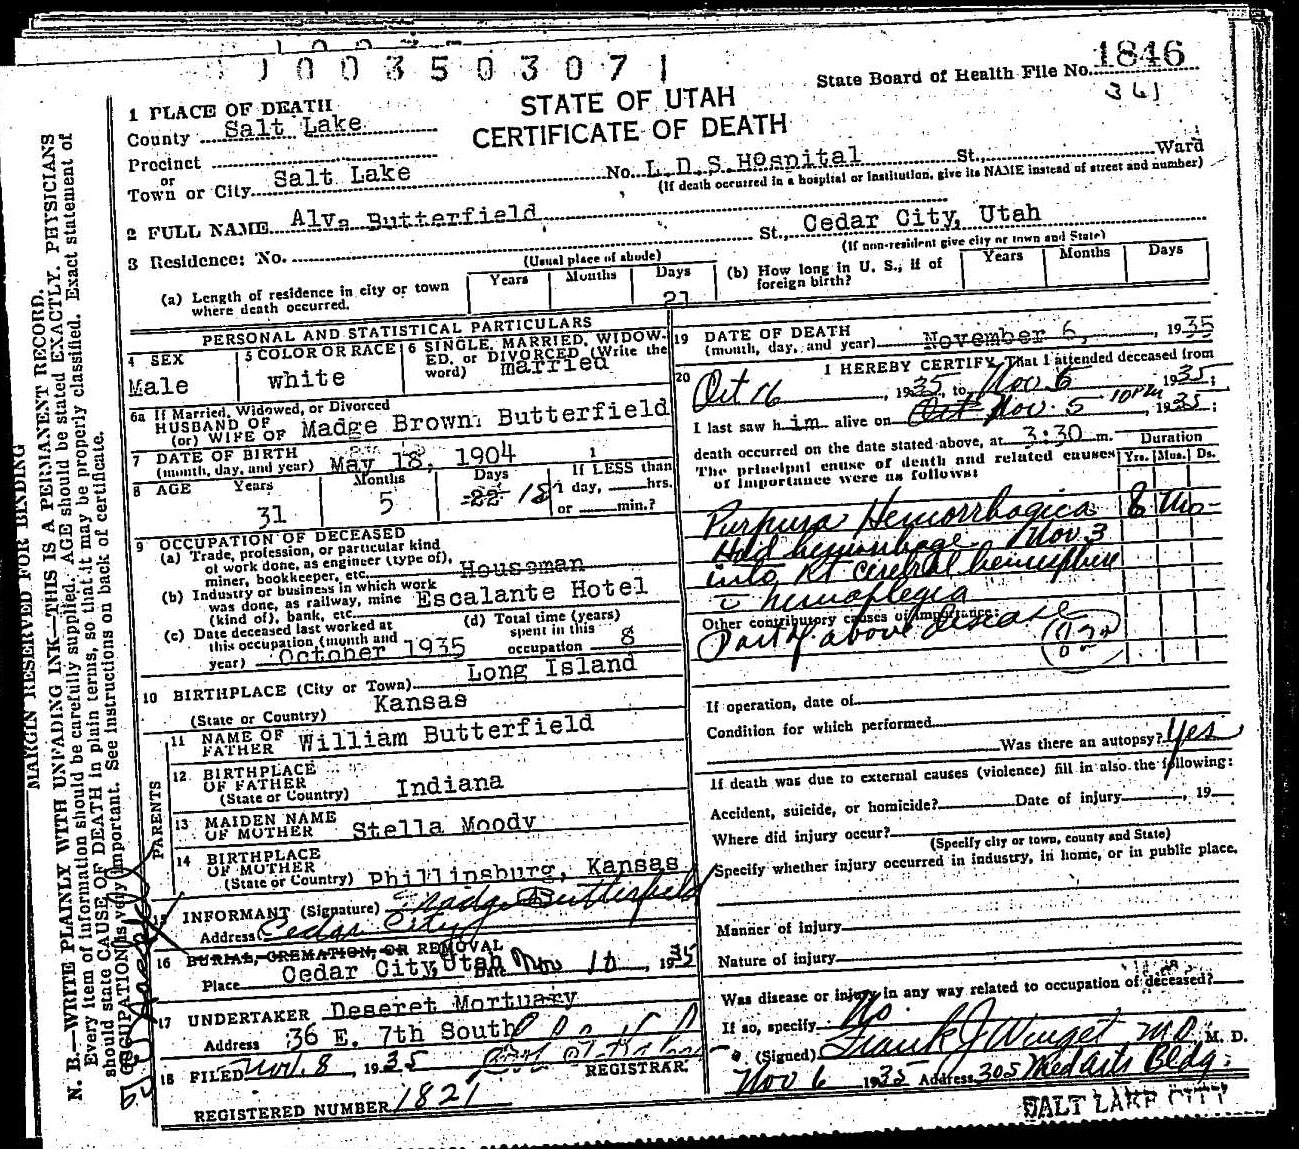 1003503071
State Board of Health File No. 1846
361
STATE OF UTAH
CERTIFICATE OF DEATH
1 PLACE OF DEATH
County Salt Lake
Precinct
or
Town or City Salt Lake No. L.D.S. Hospital St., Ward
(If death occurred in a hospital or institution, give its NAME instead of street and number)
2 FULL NAME Alva Butterfield
3 Residence: No. St., Cedar City, Utah
(Usual place of abode) (If non-resident give city or town and State)
(a) Length of residence in city or town where death occurred. Years Months Days 21
(b) How long in U. S., if of foreign birth? Years Months Days
PERSONAL AND STATISTICAL PARTICULARS
4 SEX Male
5 COLOR OR RACE white
6 SINGLE, MARRIED, WIDOWED, or DIVORCED (Write the word) married
6a If Married, Widowed, or Divorced
HUSBAND OF
(or) WIFE OF Madge Brown Butterfield
7 DATE OF BIRTH
(month, day, and year) May 18, 1904
8 AGE Years 31 Months 5 Days 22 18 If LESS than 1 day, hrs. or min.?
9 OCCUPATION OF DECEASED
(a) Trade, profession, or particular kind of work done, as engineer (type of), miner, bookkeeper, etc. Houseman
(b) Industry or business in which work was done, as railway, mine (kind of), bank, etc. Escalante Hotel
(c) Date deceased last worked at this occupation (month and year) October 1935
(d) Total time (years) spent in this occupation 8
10 BIRTHPLACE (City or Town) Long Island
(State or Country) Kansas
PARENTS
11 NAME OF FATHER William Butterfield
12 BIRTHPLACE OF FATHER
(State or Country) Indiana
13 MAIDEN NAME OF MOTHER Stella Moody
14 BIRTHPLACE OF MOTHER
(State or Country) Phillipsburg, Kansas
15 INFORMANT (Signature) Madge Butterfield
Address Cedar City
16 BURIAL, CREMATION, OR REMOVAL
Place Cedar City, Utah Date Nov 10, 1935
17 UNDERTAKER Deseret Mortuary
Address 36 E. 7th South
18 FILED Nov. 8 1935
REGISTRAR
REGISTERED NUMBER 1821
19 DATE OF DEATH
(month, day, and year) November 6, 1935
20 I HEREBY CERTIFY, That I attended deceased from
Oct 16, 1935, to Nov 6 1935;
I last saw him alive on Oct Nov. 5 10PM, 1935;
death occurred on the date stated above, at 3:30 m.
The principal cause of death and related causes of importance were as follows: Duration Yrs. Mos. Ds.
Purpura Hemorrhagica 8 Mo
Had hemorrhage Nov 3
into Rt cerebral hemisphere
c hemiplegia
Other contributory causes of importance:
Part of above disease
If operation, date of
Condition for which performed
Was there an autopsy? Yes
If death was due to external causes (violence) fill in also the following:
Accident, suicide, or homicide? Date of injury, 19
Where did injury occur?
(Specify city or town, county and State)
Specify whether injury occurred in industry, in home, or in public place.
Manner of injury
Nature of injury
Was disease or injury in any way related to occupation of deceased?
If so, specify No.
(Signed) Frank J Winget MD M. D.
Nov 6 1935 Address 305 Med Arts Bldg.
SALT LAKE CITY
MARGIN RESERVED FOR BINDING
N. B.—WRITE PLAINLY WITH UNFADING INK—THIS IS A PERMANENT RECORD.
Every item of information should be carefully supplied. AGE should be stated EXACTLY. PHYSICIANS
should state CAUSE OF DEATH in plain terms, so that it may be properly classified. Exact statement of
OCCUPATION is very important. See instructions on back of certificate.